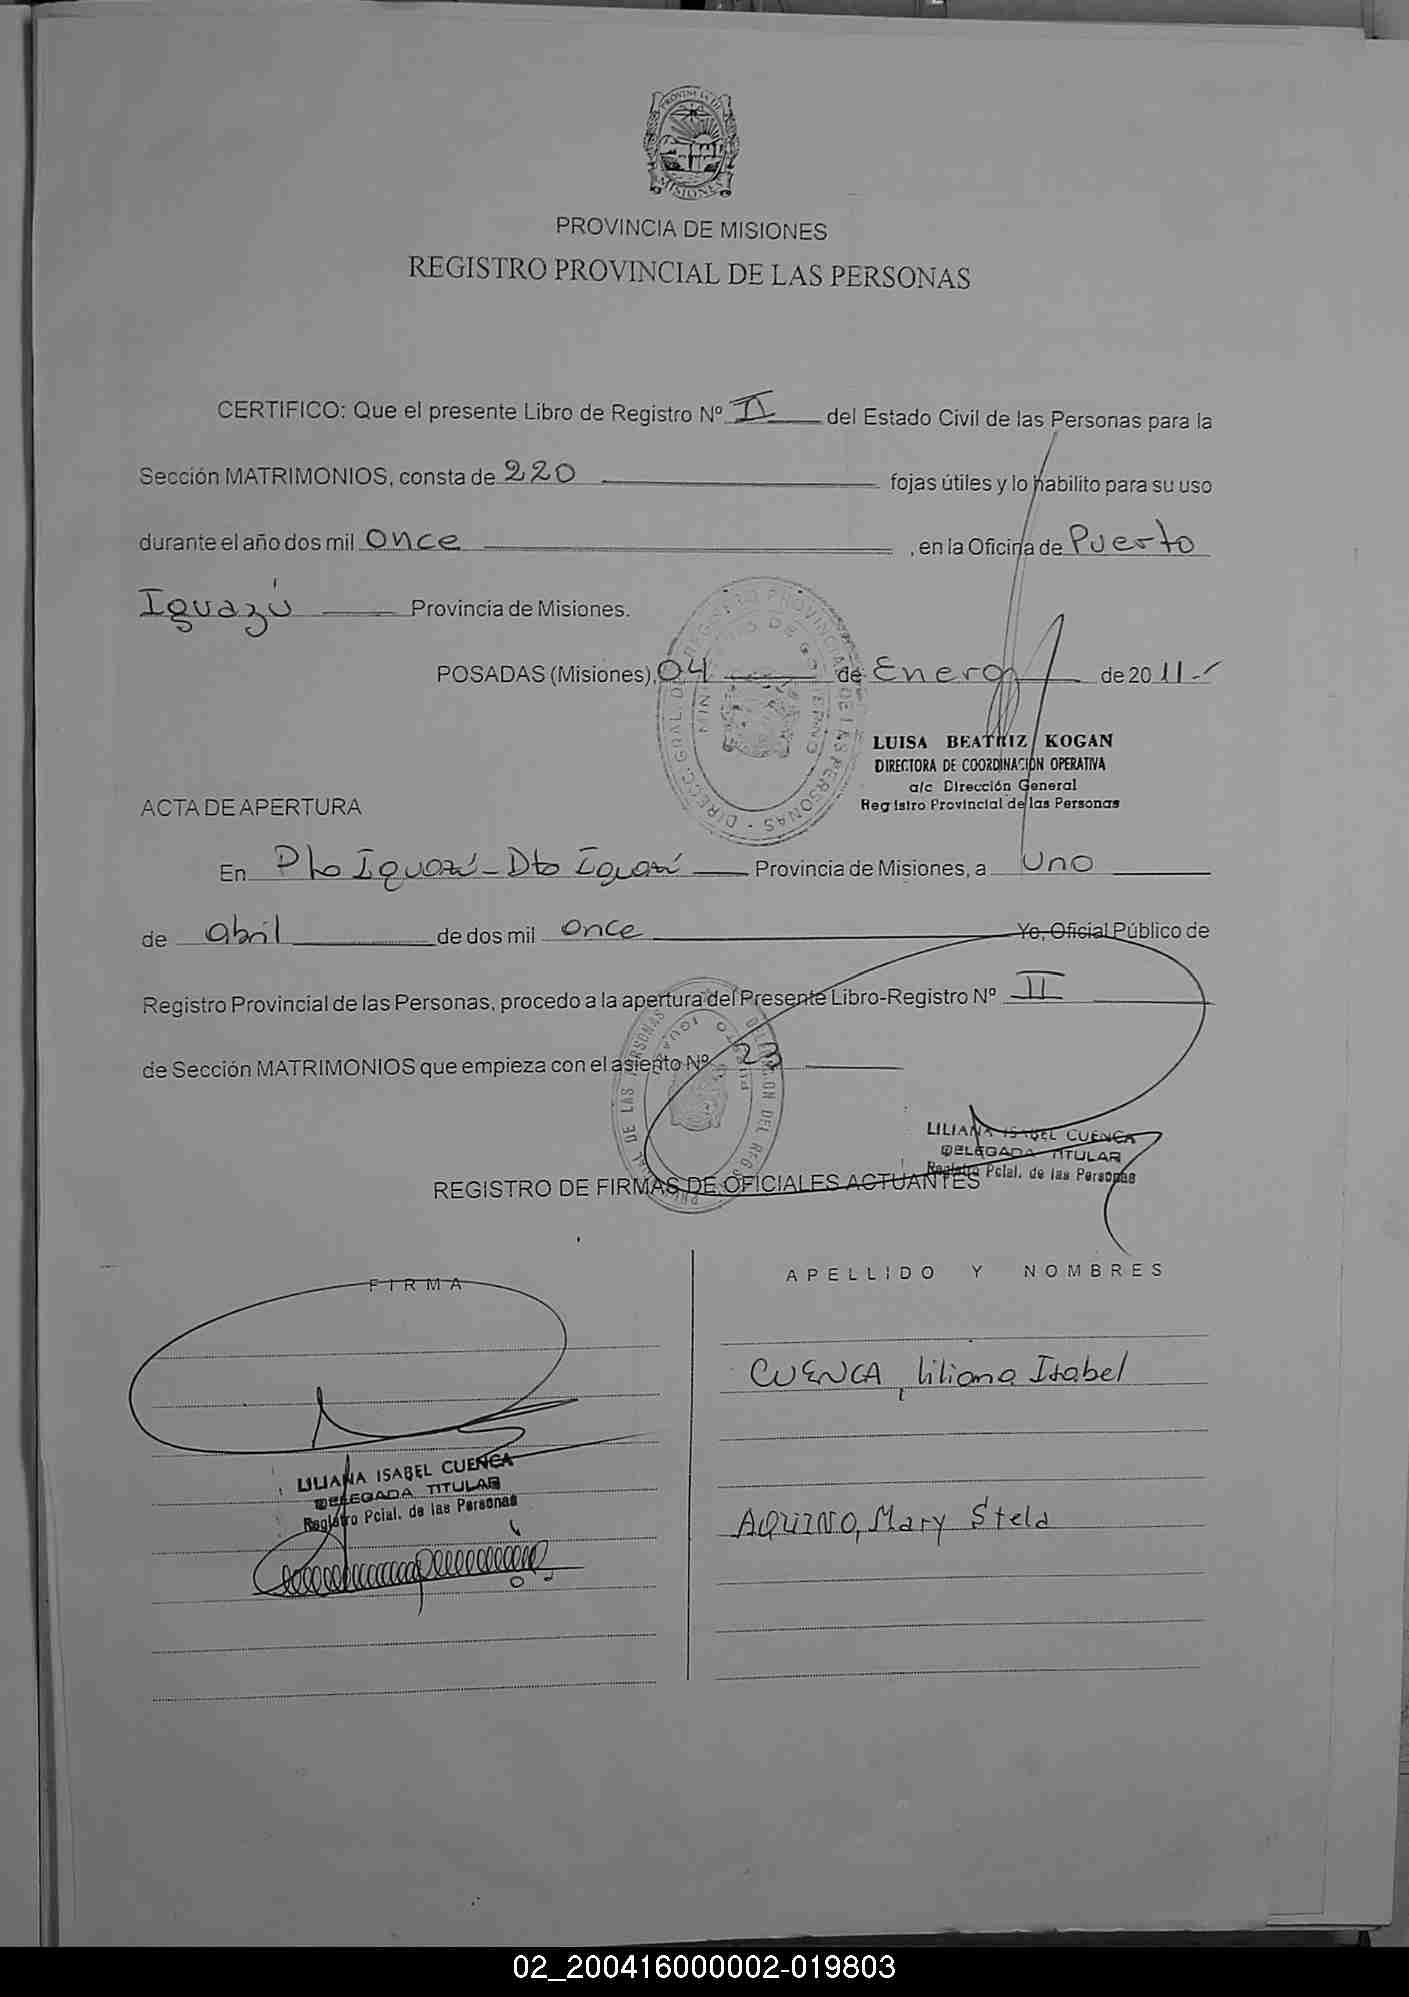 PROVINCIA DE MISIONES
PROVINCIA DE MISIONES
REGISTRO PROVINCIAL DE LAS PERSONAS
CERTIFICO: Que el presente Libro de Registro Nº II del Estado Civil de las Personas para la
Sección MATRIMONIOS, consta de 220 fojas útiles y lo habilito para su uso
durante el año dos mil Once , en la Oficina de Puerto
Iguazú Provincia de Misiones.
POSADAS (Misiones), 04 de Enero de 2011.-
DIRECC. GRAL. DE REGISTRO PROVINCIAL DE LAS PERSONAS -
MINISTERIO DE GOBIERNO
LUISA BEATRIZ KOGAN
DIRECTORA DE COORDINACIÓN OPERATIVA
a/c Dirección General
Registro Provincial de las Personas
ACTA DE APERTURA
En Pto Iguazú - Dto Iguazú Provincia de Misiones, a Uno
de abril de dos mil once Yo, Oficial Público de
Registro Provincial de las Personas, procedo a la apertura del Presente Libro-Registro Nº II
de Sección MATRIMONIOS que empieza con el asiento Nº
LILIANA ISABEL CUENCA
DELEGADA TITULAR
Registro Pcial. de las Personas
REGISTRO DE FIRMAS DE OFICIALES ACTUANTES
FIRMA
APELLIDO Y NOMBRES
CUENCA, Liliana Isabel
LILIANA ISABEL CUENCA
DELEGADA TITULAR
Registro Pcial. de las Personas
AQUINO, Mary Stela
02_200416000002-019803